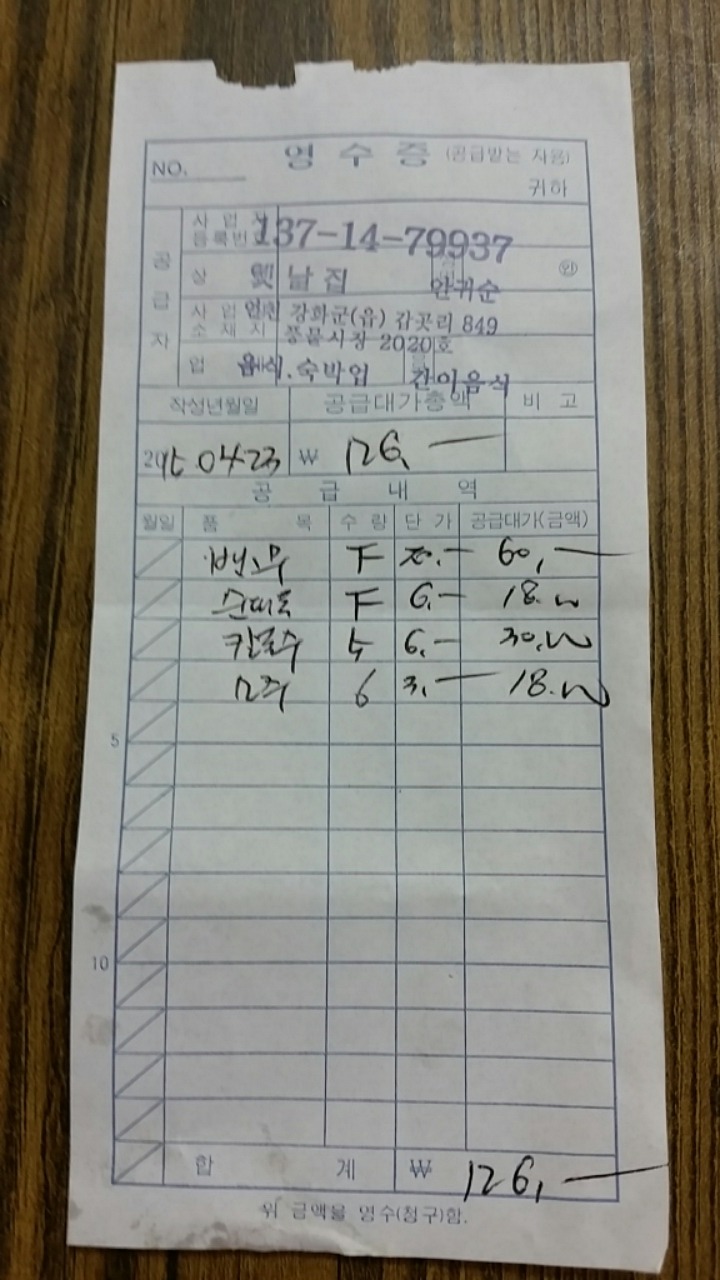 NO. 영수증 (공급받는 자용)
귀하
공급자
사업자등록번호 137-14-79937
상 옛날집 안귀순 인
사업 소재지 인천 강화군(읍) 갑곳리 849
풍물시장 2020호
업 음식.숙박업 간이음식
작성년월일 공급대가총액 비고
2015 04 23 ₩ 126,—
공급내역
월일 품목 수량 단가 공급대가(금액)
F 20.— 60,—
순대국 F 6.— 18.
칼국수 5 6.— 30.
모주 6 3.— 18.
5
10
합계 ₩ 126,—
위 금액을 영수(청구)함.